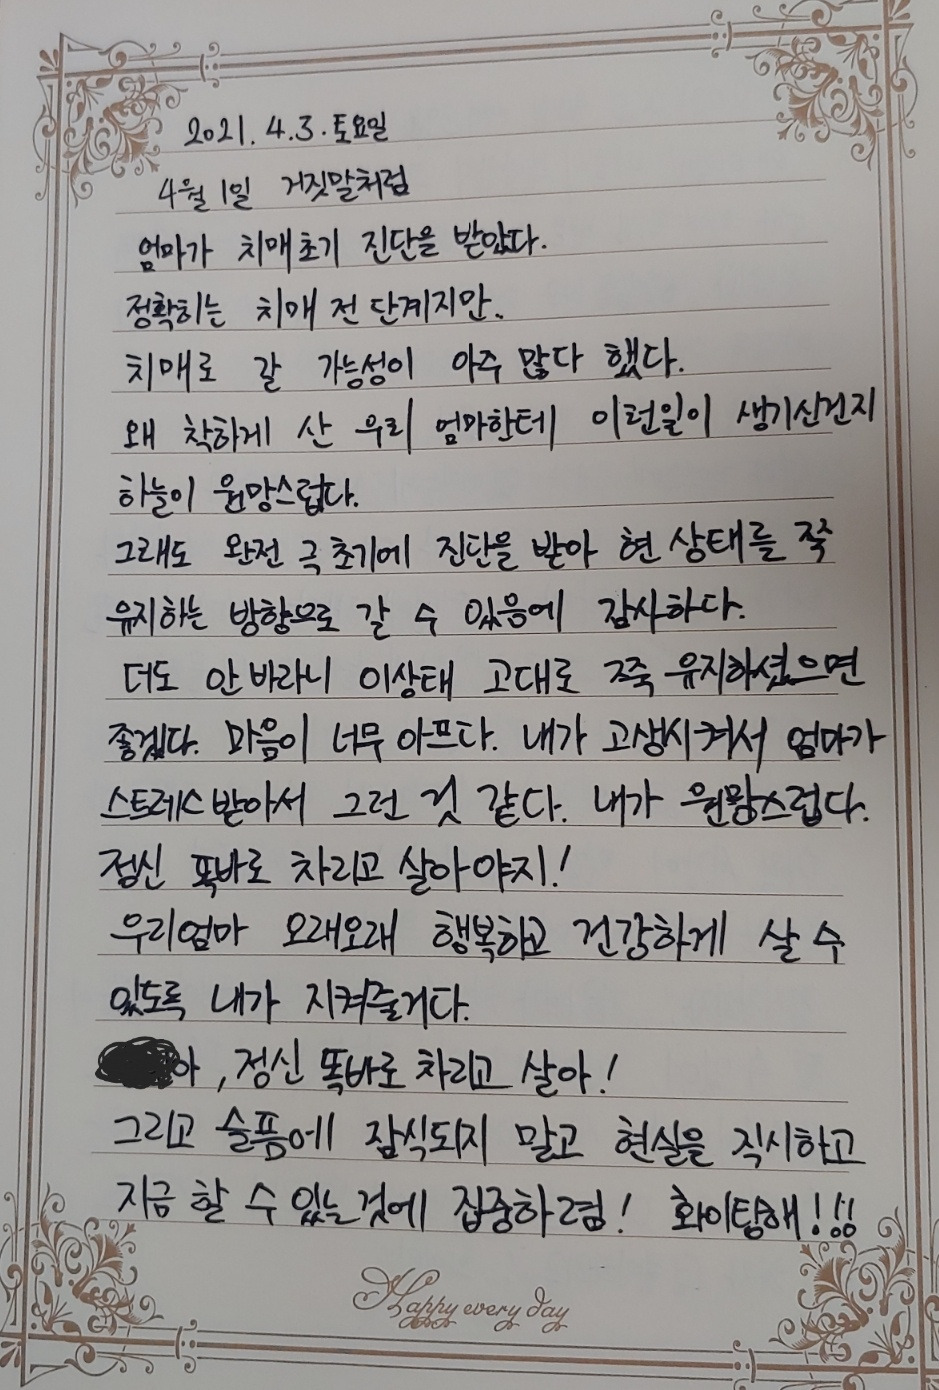 2021. 4. 3. 토요일
4월 1일 거짓말처럼
엄마가 치매초기 진단을 받았다.
정확히는 치매 전 단계지만.
치매로 갈 가능성이 아주 많다 했다.
왜 착하게 산 우리 엄마한테 이런일이 생기신건지
하늘이 원망스럽다.
그래도 완전 극초기에 진단을 받아 현 상태를 쭉
유지하는 방향으로 갈 수 있음에 감사하다.
더도 안바라니 이상태 고대로 쭉 유지하셨으면
좋겠다. 마음이 너무 아프다. 내가 고생시켜서 엄마가
스트레스받아서 그런 것 같다. 내가 원망스럽다.
정신 똑바로 차리고 살아야지!
우리엄마 오래오래 행복하고 건강하게 살 수
있도록 내가 지켜줄거다.
아, 정신 똑바로 차리고 살아!
그리고 슬픔에 잠식되지 말고 현실을 직시하고
지금 할 수 있는것에 집중하렴! 화이팅해!!!
Happy every day